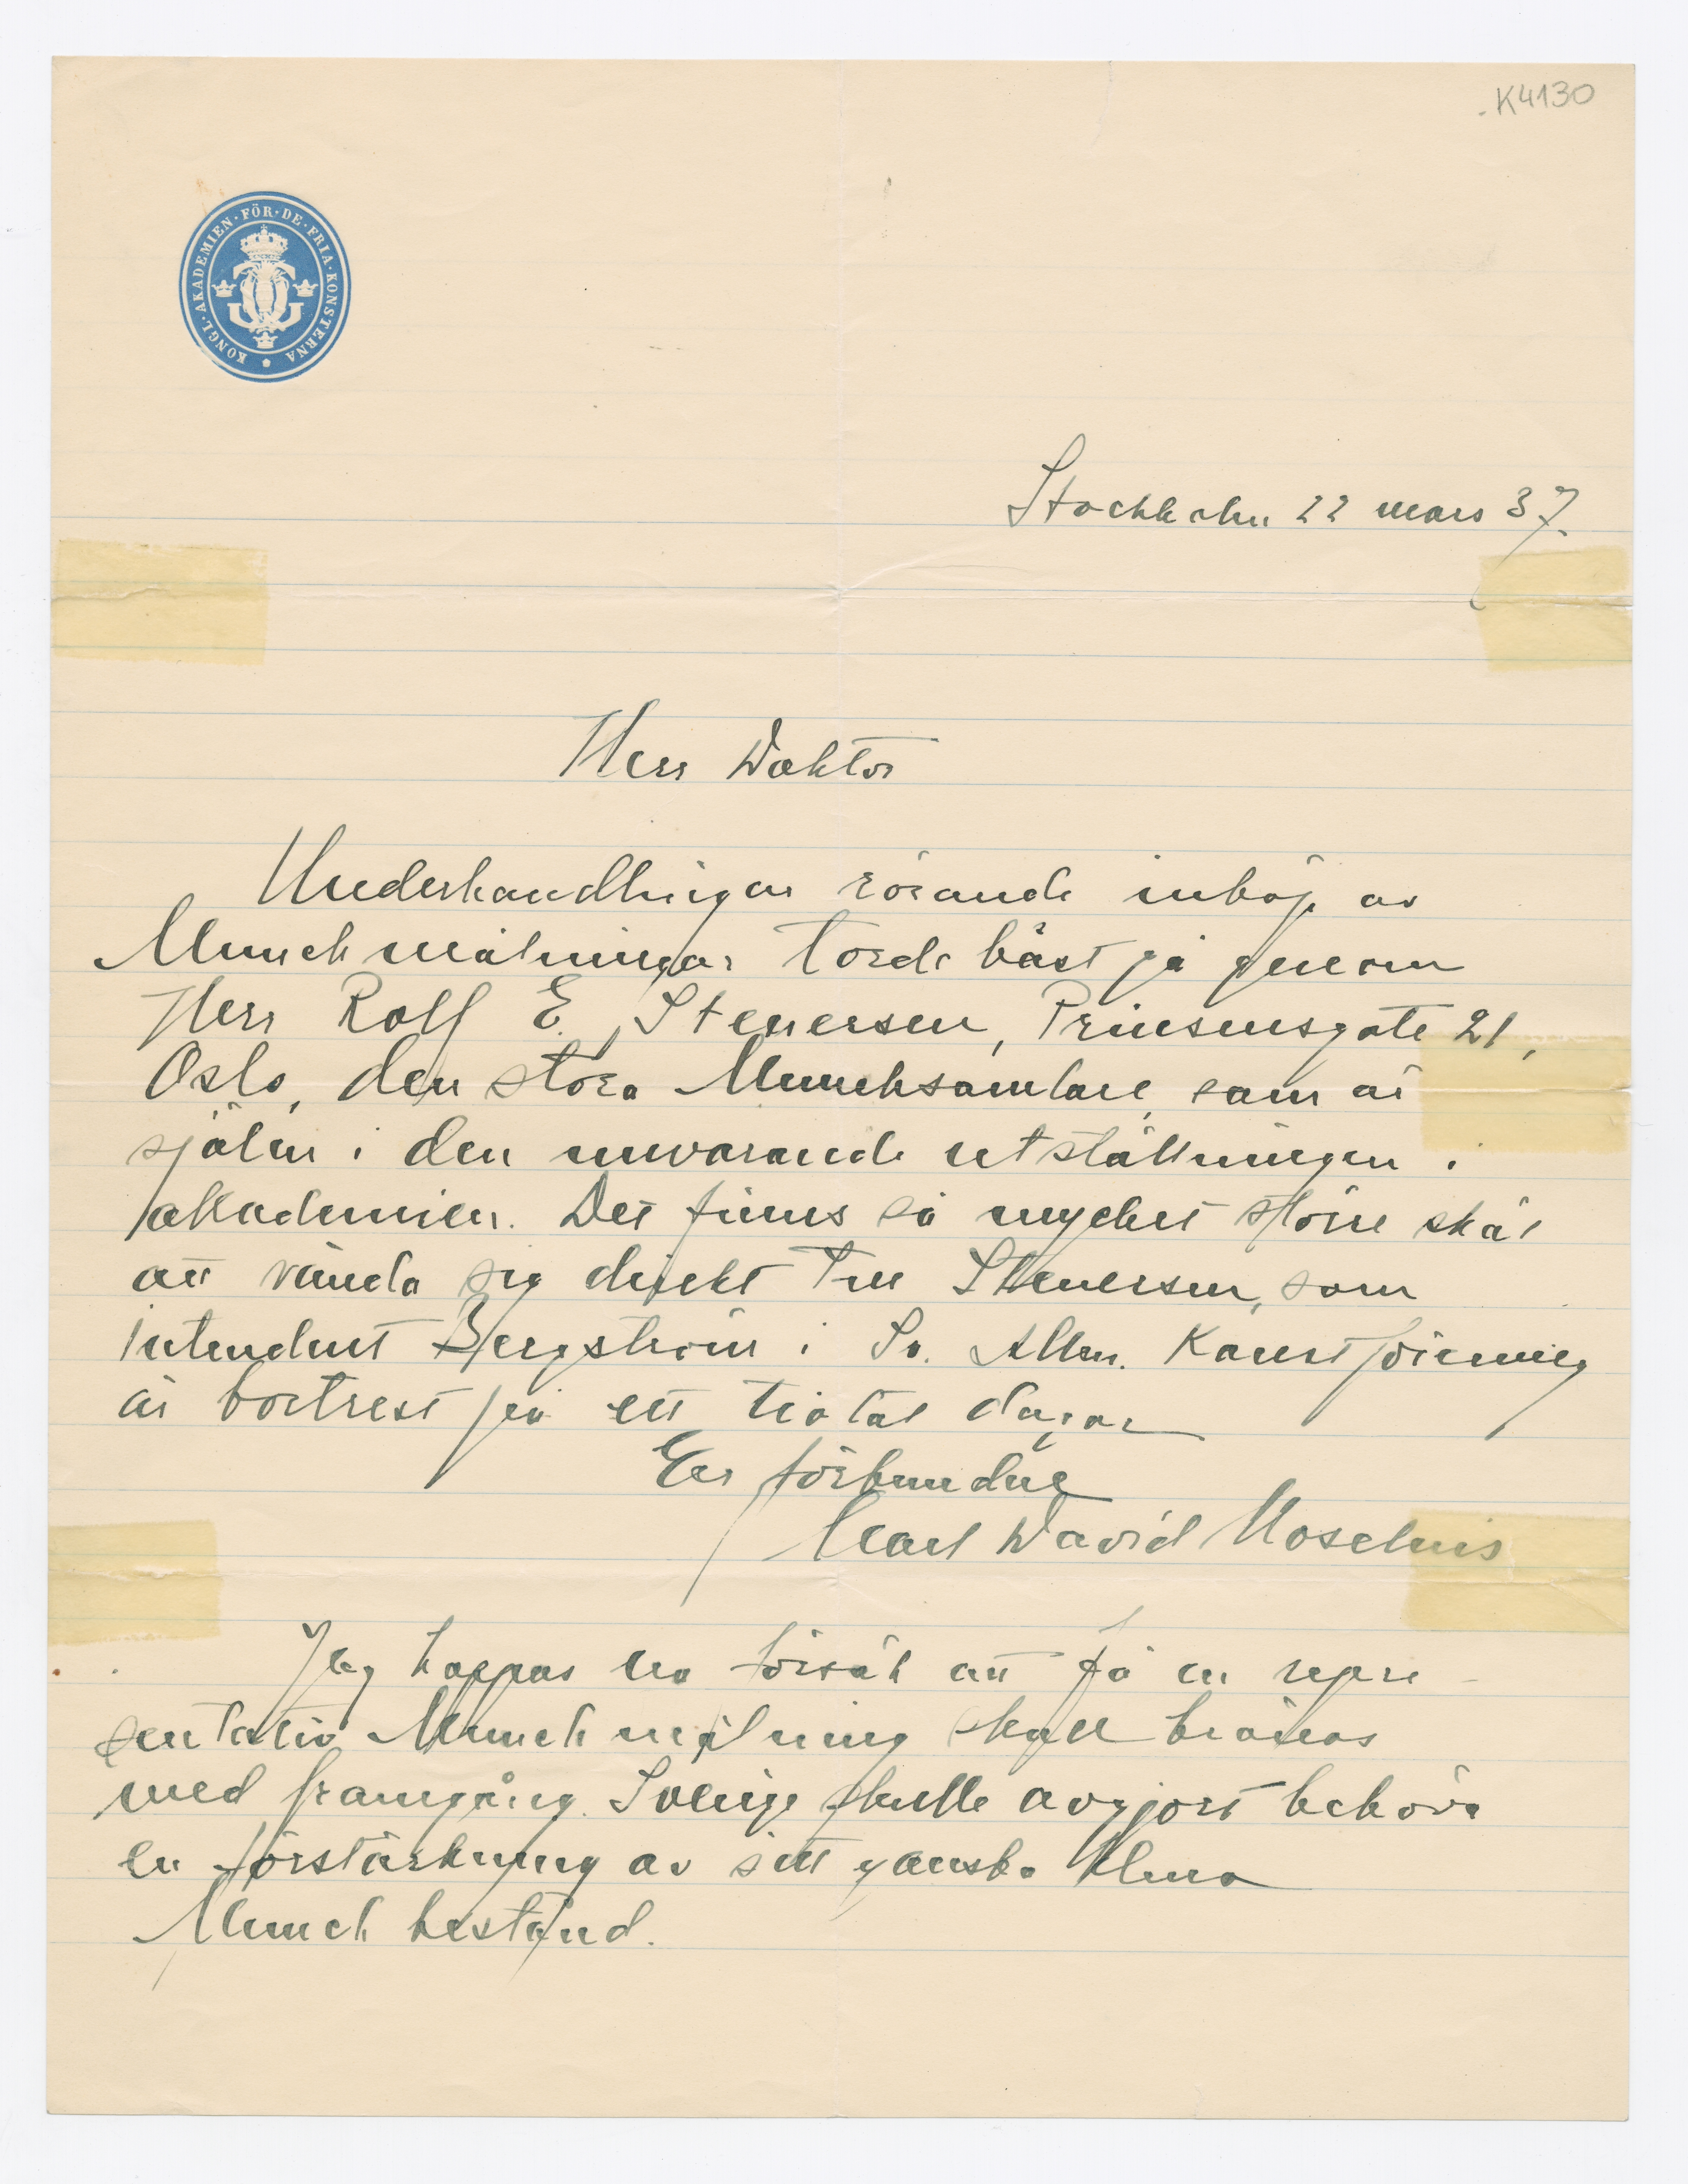 K4130
KONGL·AKADEMIEN·FÖR·DE·FRIA·KONSTERNA
Stockholm 22 mars 37.
Herr Doktor
Underhandlingar rörande inköp av
Munchmålningar torde bäst gå genom
Herr Rolf E. Stenersen, Prinsensgate 21,
Oslo, den store Munchsamlare, som är
själen i den nuvarande utställningen i
akademien. Det finns så mycket större skäl
att vända sig direkt till Stenersen, som
intendent Bergström i Sv. Allm. Konstförening
är bortrest på ett tiotal dagar
Er förbundne
Carl David Moselius
Jag hoppas en försök att få en repre-
sentativ Munch målning skall krönas
med framgång. Sverige skulle avgjort behöva
en förstärkning av sitt ganska klena
Munch bestånd.